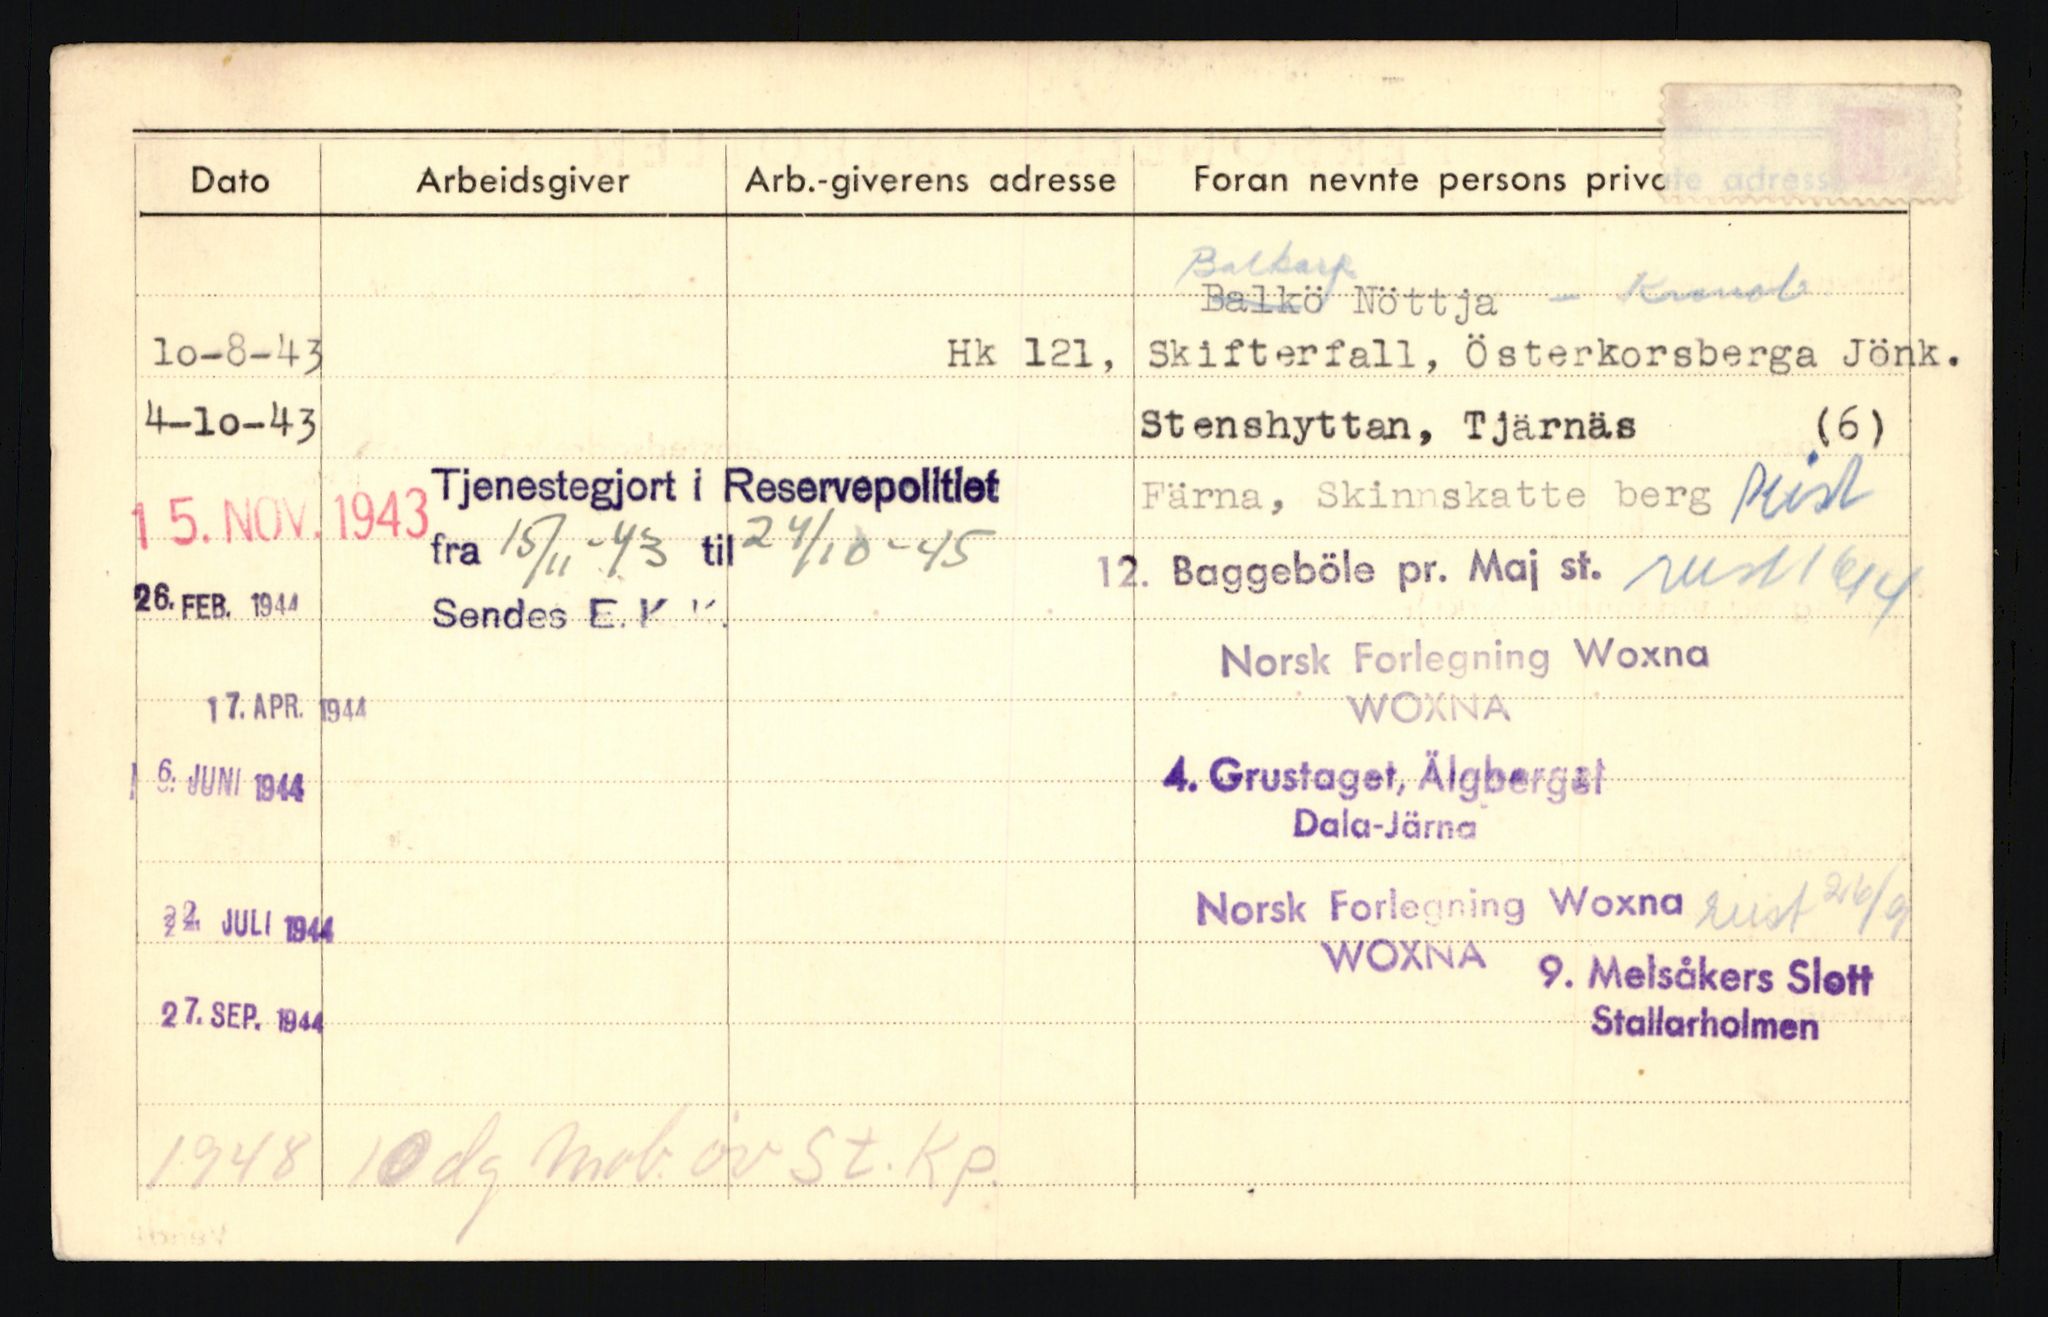 Dato Arbeidsgiver Arb.-giverens adresse Foran nevnte persons private adresse
Balkarp
Balkö Nöttja - Kronob.
10-8-43 Hk 121, Skifterfall, Österkorsberga Jönk.
4-10-43 Stenshyttan, Tjärnäs (6)
15. NOV. 1943 Tjenestegjort i Reservepolitiet Färna, Skinnskatte berg
fra 15/11-43 til 24/10-45
26. FEB. 1944 Sendes E.K.K. 12. Baggeböle pr. Maj st.
Norsk Forlegning Woxna
17. APR. 1944 WOXNA
16. JUNI 1944 4. Grustaget, Älgberget
Dala-Järna
22. JULI 1944 Norsk Forlegning Woxna reist 26/9
WOXNA
27. SEP. 1944 9. Melsåkers Slott
Stallarholmen
1948 10 dg Mob. öv St. Kp.